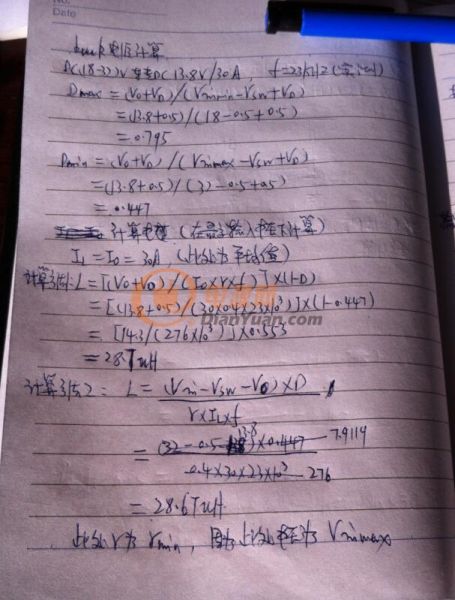 No.
Date
buck电感计算
DC(18-32)V 转DC 13.8V/30A, f=23KHZ(实测)
Dmax = (Vo+VD)/(Vinmin-Vsw+VD)
=(13.8+0.5)/(18-0.5+0.5)
=0.795
Dmin = (Vo+VD)/(Vinmax-Vsw+VD)
=(13.8+0.5)/(32-0.5+0.5)
=0.447
计算电感(在最高输入电压下计算)
IL=Io=30A (此处为平均值)
计算方法1: L=[(Vo+VD)/(Io×r×f)]×(1-D)
=[(13.8+0.5)/(30×0.4×23×10³)]×(1-0.447)
=[14.3/(276×10³)]×0.553
=28.7uH
DianYuan.com
计算方法2: L=(Vin-Vsw-Vo)×D
r×IL×f
=(32-0.5-13.8)×0.447 7.9119
0.4×30×23×10³ 276
=28.67uH
此处r为rmin, 因为此处电压为Vinmax